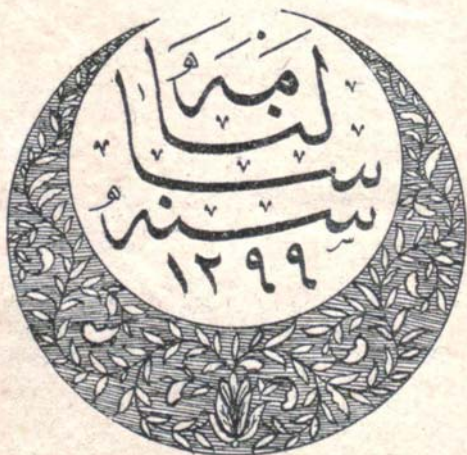 سالنامه
سنه
١٢٩٩